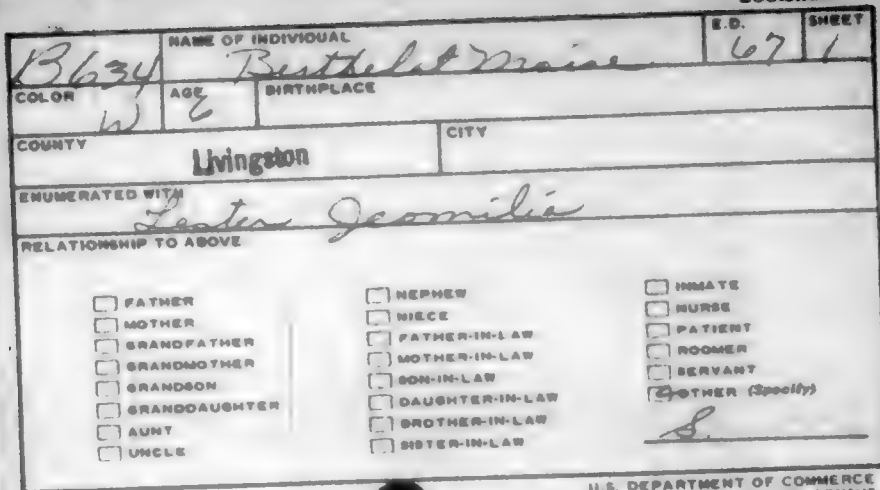 NAME OF INDIVIDUAL E.D. SHEET
B634 Berthelot 67 1
COLOR AGE BIRTHPLACE
W 6
COUNTY CITY
Livingston
ENUMERATED WITH
Lester
RELATIONSHIP TO ABOVE
FATHER
MOTHER
GRANDFATHER
GRANDMOTHER
GRANDSON
GRANDDAUGHTER
AUNT
UNCLE
NEPHEW
NIECE
FATHER-IN-LAW
MOTHER-IN-LAW
SON-IN-LAW
DAUGHTER-IN-LAW
BROTHER-IN-LAW
SISTER-IN-LAW
INMATE
NURSE
PATIENT
ROOMER
SERVANT
OTHER (Specify)
S.
U.S. DEPARTMENT OF COMMERCE